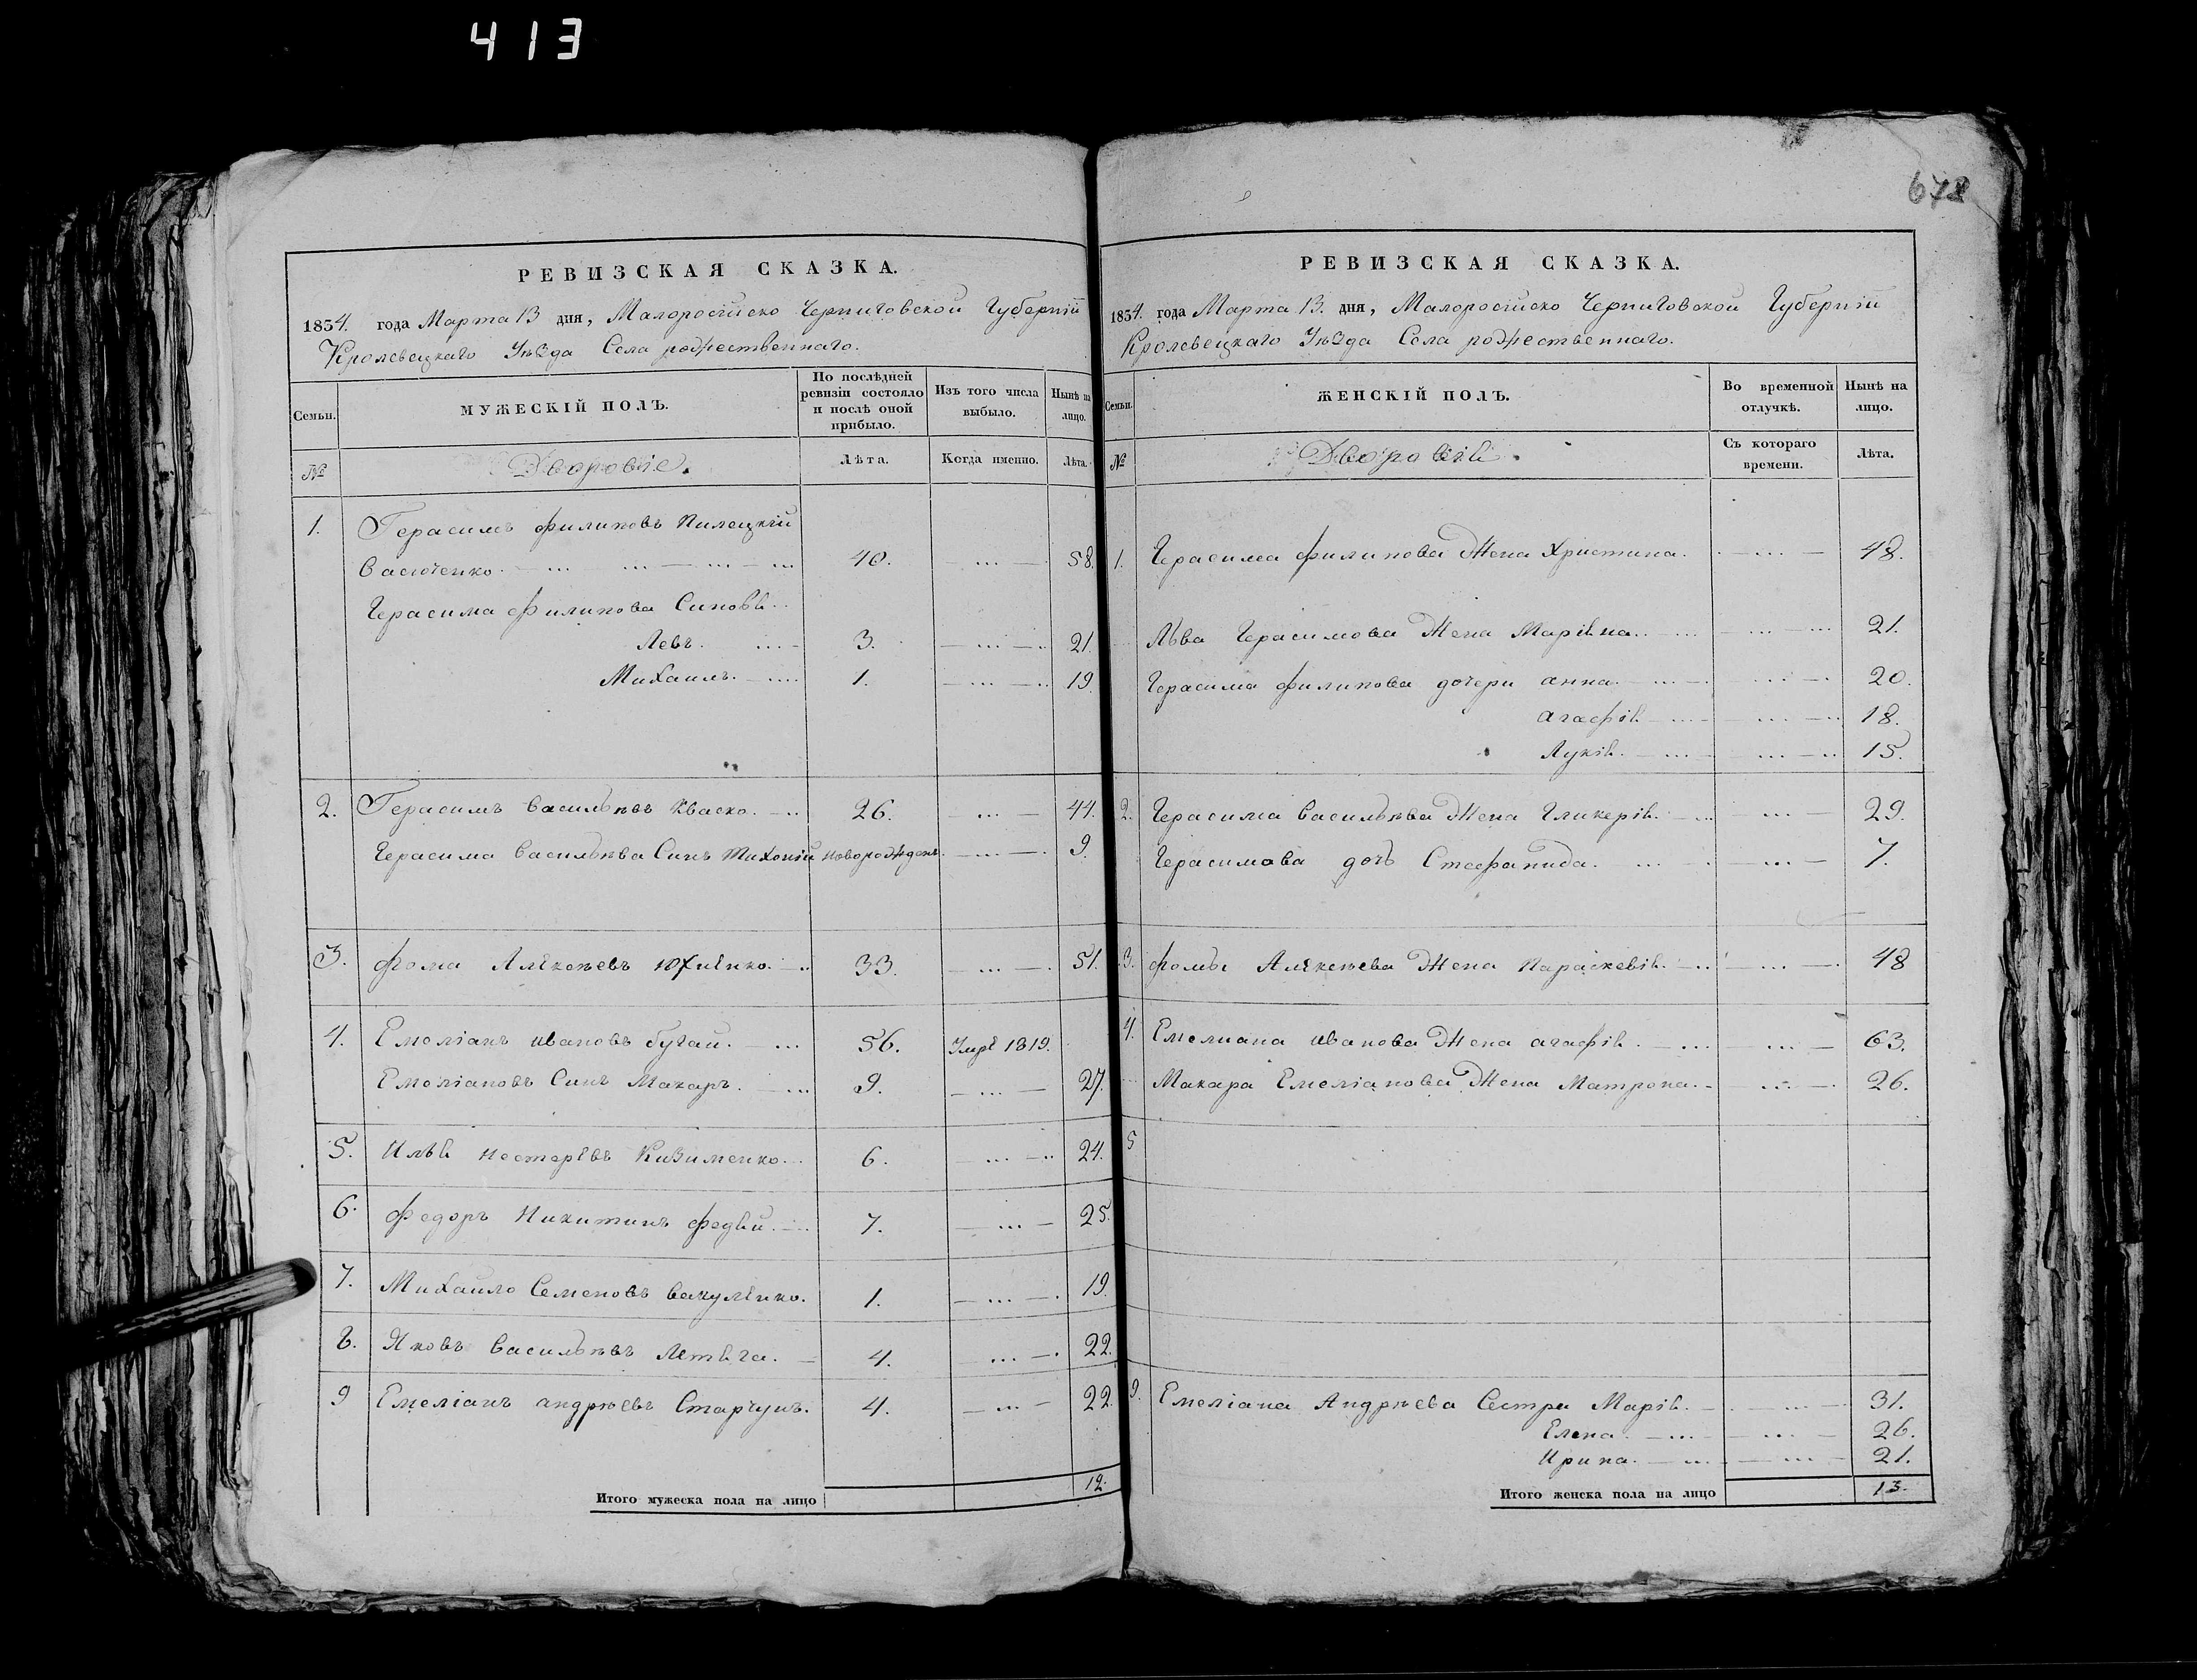 413
678
РЕВИЗСКАЯ СКАЗКА.
1834. года Марта 13 дня, Малоросійско Черниговской Губерніи
Кролевецкаго Уѣзда Села рождественнаго.
Семьи. МУЖЕСКІЙ ПОЛЪ. По послѣдней ревизіи состояло и послѣ оной прибыло. Изъ того числа выбыло. Нынѣ на лицо.
№ Дворовіе. Лѣта. Когда именно. Лѣта.
1. Герасимъ филиповъ Пилецкій
Васюченко. 40. 58.
Герасима Филипова Синовья
Левъ. 3. 21.
Михаилъ. 1. 19
2. Герасимъ Васильевъ Кваско. 26. 44.
Герасима Васильѣва Синъ Тихоній новорожденъ. 9.
3. фома Алекѣевъ 33. 51.
4. Емеліанъ ивановъ бугай. 56. Умре 1819.
Емеліановъ Синъ Макаръ. 9. 27.
5. Илья Нестеревъ Кизименко. 6. 24.
6. Федоръ Никитинъ федяй. 7. 25.
7. Михайло Семеновъ Вакуленко. 1. 19.
8. Яковъ Васильѣвъ Летяга. 4. 22.
9 Емеліанъ андрѣевъ Старчунъ. 4. 22.
Итого мужеска пола на лицо 12.
РЕВИЗСКАЯ СКАЗКА.
1834. года Марта 13. дня, Малоросійско Черниговской Губерніи
Кролевецкаго Уѣзда Села рождественнаго.
Семьи. ЖЕНСКІЙ ПОЛЪ. Во временной отлучкѣ. Нынѣ на лицо.
№ Дворовія. Съ котораго времени. Лѣта.
1. Герасима филипова Жена Христина. 48.
Льва Герасимова Жена Маріяна. 21.
Герасима филипова дочери анна. 20.
агафія. 18.
Лукія. 15.
2. Герасима Васильѣва Жена Гликерія. 29.
Герасимова дочь Стефанида. 7.
3. фомы Алекѣева Жена Параскевія. 48
4. Емелиана иванова Жена агафія. 63.
Макара Емеліанова Жена Матрона. 26.
5
9. Емеліана Андрѣева Сестри Марія. 31.
Елена. 26.
Ирина. 21.
Итого женска пола на лицо 13.